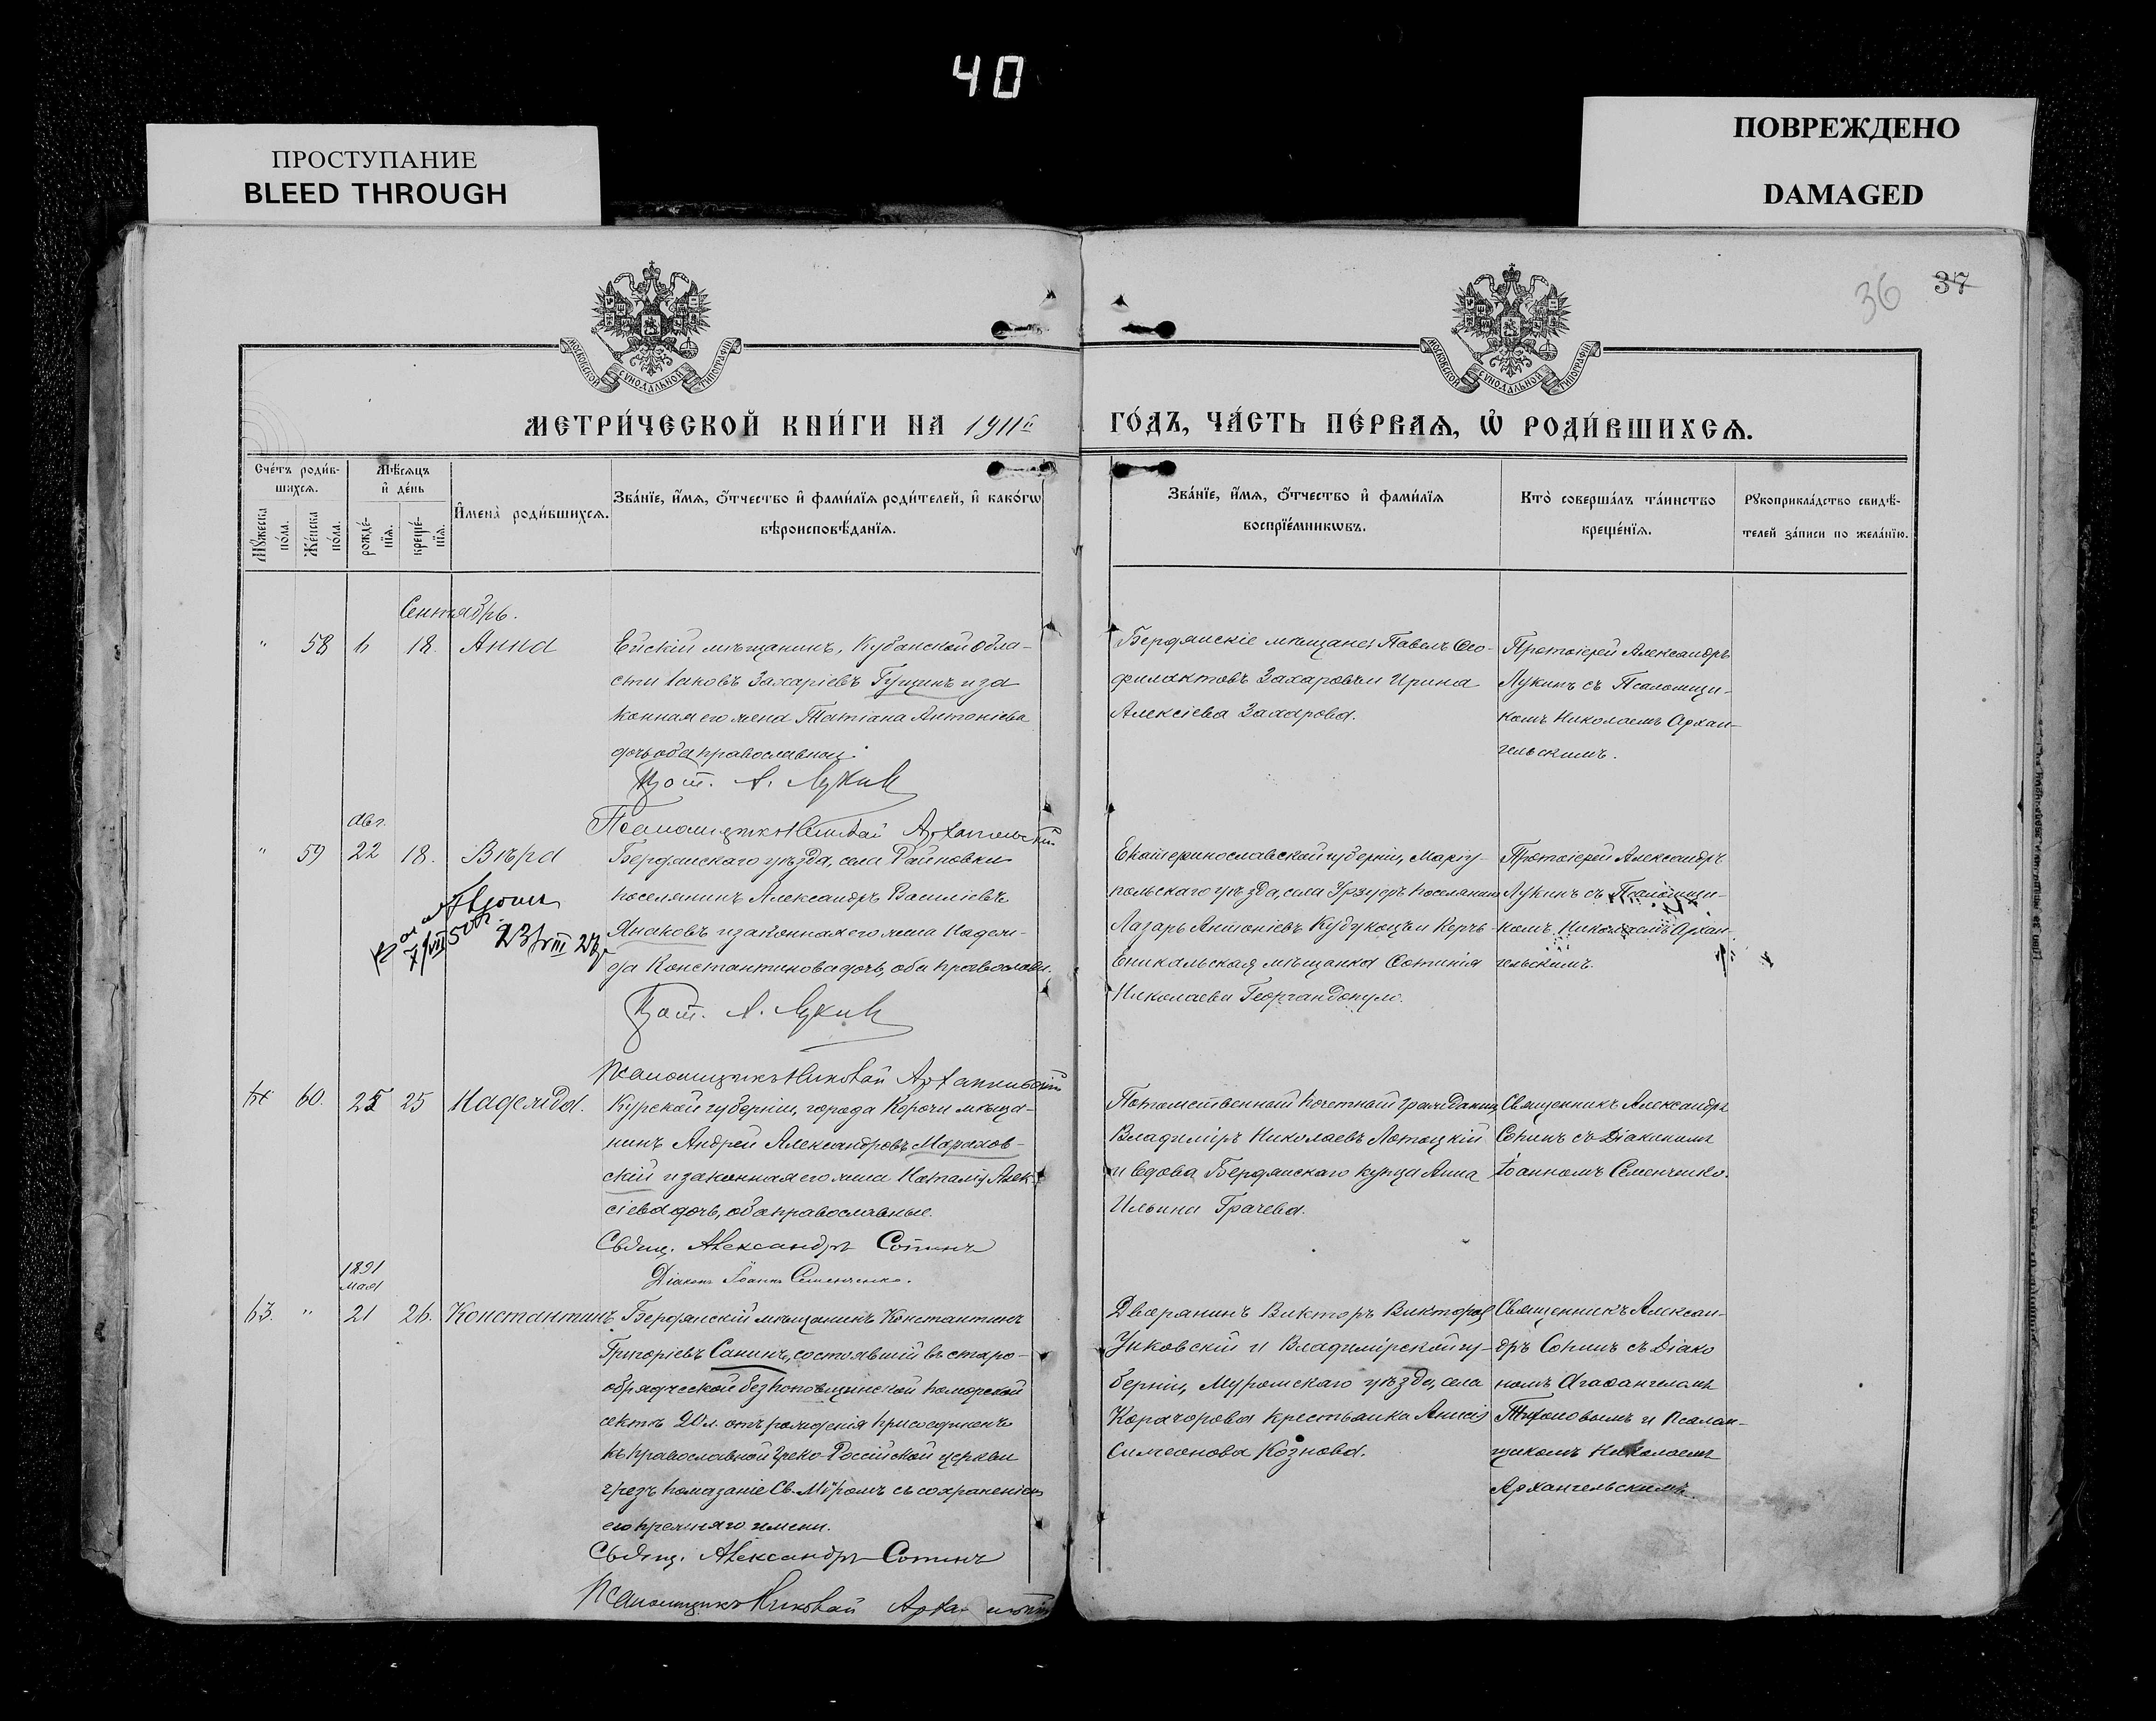 40
ПРОСТУПАНИЕ
BLEED THROUGH
ПОВРЕЖДЕНО
DAMAGED
36 37
МОСКОВСКОЙ СѴНОДАЛЬНОЙ ТИПОГРАФІИ
МОСКОВСКОЙ СѴНОДАЛЬНОЙ ТИПОГРАФІИ
МЕТРИ́ЧЕСКОЙ КНИ́ГИ НА 1911й
ГО́ДЪ, ЧА́СТЬ ПЕ́РВАѦ, Ѡ҆ РОДИ́ВШИХСѦ.
Сче́тъ роди́в-
шихсѧ.
Мꙋ́жеска по́ла.
Же́нска по́ла.
Мѣ́сѧцъ
и҆ де́нь
рожде́-
нїѧ.
креще́-
нїѧ.
И҆мена̀ роди́вшихсѧ.
Зва́нїе, и҆́мѧ, ѻ҆́тчество и҆ фами́лїѧ роди́телей, и҆ како́гѡ
вѣроисповѣ́данїѧ.
Зва́нїе, и҆́мѧ, ѻ҆́тчество и҆ фами́лїѧ
воспрїе́мникѡвъ.
Кто̀ соверша́лъ та́инство
креще́нїѧ.
Рꙋкоприкла́дство свидѣ́-
телей за́писи по жела́нїю.
Сентябрь.
" 58 6 18. Анна
Ейскій мѣщанинъ, Кубанской обла-
сти Іаковъ Захаріевъ Гущинъ и за
конная его жена Татіана Антоніева
дочь оба православны.
Прот. А. Лукин
Псаломщикъ Николай Архангельскій
Бердянскіе мѣщане: Павелъ Ѳео-
филактовъ Захаровъ и Ирина
Алексіева Захарова.
Протоіерей Александръ
Лукинъ съ Псаломщи-
комъ Николаемъ Архан-
гельскимъ.
Авг.
" 59 22 18. Вѣра
23/VIII 27
Бердянскаго уѣзда, села Райновки
поселянинъ Александръ Василіевъ
Янаковъ и законная его жена Надеж-
да Константинова дочь, оба православн.
Прот. А. Лукин
Псаломщикъ Николай Архангельскій
Екатеринославской губерніи, Маріу-
польскаго уѣзда, села Урзуфъ поселянинъ
Лазарь Антоніевъ и Керчь-
Еникальская мѣщанка Фотинія
Николаева Георгандопуло.
Протоіерей Александръ
Лукинъ съ Псаломщи-
комъ Николаемъ Архан-
гельскимъ.
60. 25 25 Надежда.
Курской губерніи, города Корочи мѣща-
нинъ Андрей Александровъ Мараховс-
скій и законная его жена Наталія Алек-
сіева дочь, оба православные.
Свящ. Александръ Сопинъ
Діаконъ Іоаннъ Семенченко.
Потомственный почетный гражданинъ
Владиміръ Николаевъ Лотоцкій
и вдова Бердянскаго купца Анна
Ильина Грачева.
Священникъ Александръ
Сопинъ съ Діакономъ
Іоанномъ Семенченко.
1891
мая
63. " 21 26. Константинъ
Бердянскій мѣщанинъ Константинъ
Григоріевъ Санинъ, состоявшій въ старо-
обрядческой безпоповщинской поморской
сектѣ 20 л. отъ рожденія присоединенъ
къ православной Греко-Россійской церкви
чрезъ помазаніе Св. Мѵромъ съ сохраненіемъ
его прежняго имени.
Свящ. Александръ Сопинъ
Псаломщикъ Николай Архангельскій
Дворянинъ Викторъ Викторовъ
Унковскій и Владимірской гу-
берніи, Муромскаго уѣзда, села
Карачарова крестьянка Анисія
Симеонова Кознова.
Священникъ Алексан-
дръ Сопинъ съ Діако
номъ Агаѳангеломъ
Тихоновымъ и Псалом-
щикомъ Николаемъ
Архангельскимъ.